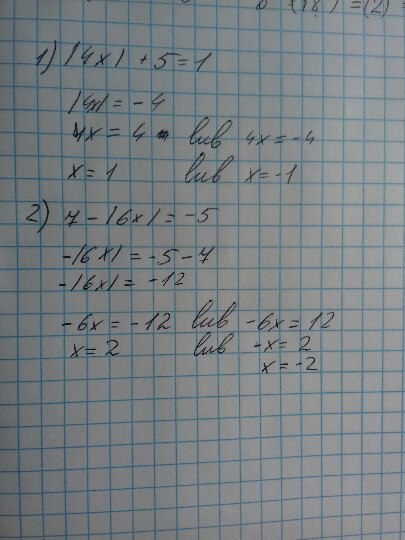 1) |4x| + 5 = 1
|4x| = -4
4x = 4 lub 4x = -4
x = 1 lub x = -1
2) 7 - |6x| = -5
-|6x| = -5 - 7
-|6x| = -12
-6x = -12 lub -6x = 12
x = 2 lub -x = 2
x = -2